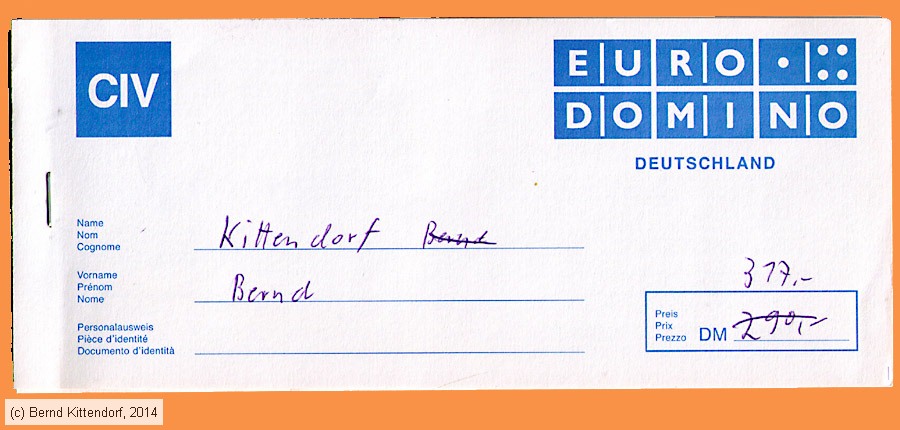 CIV
EURO
DOMINO
DEUTSCHLAND
Name
Nom
Cognome
Kittendorf Bernd
Vorname
Prénom
Nome
Bernd
Personalausweis
Pièce d'identité
Documento d'identità
317,-
Preis
Prix
Prezzo
DM 290,-
(c) Bernd Kittendorf, 2014